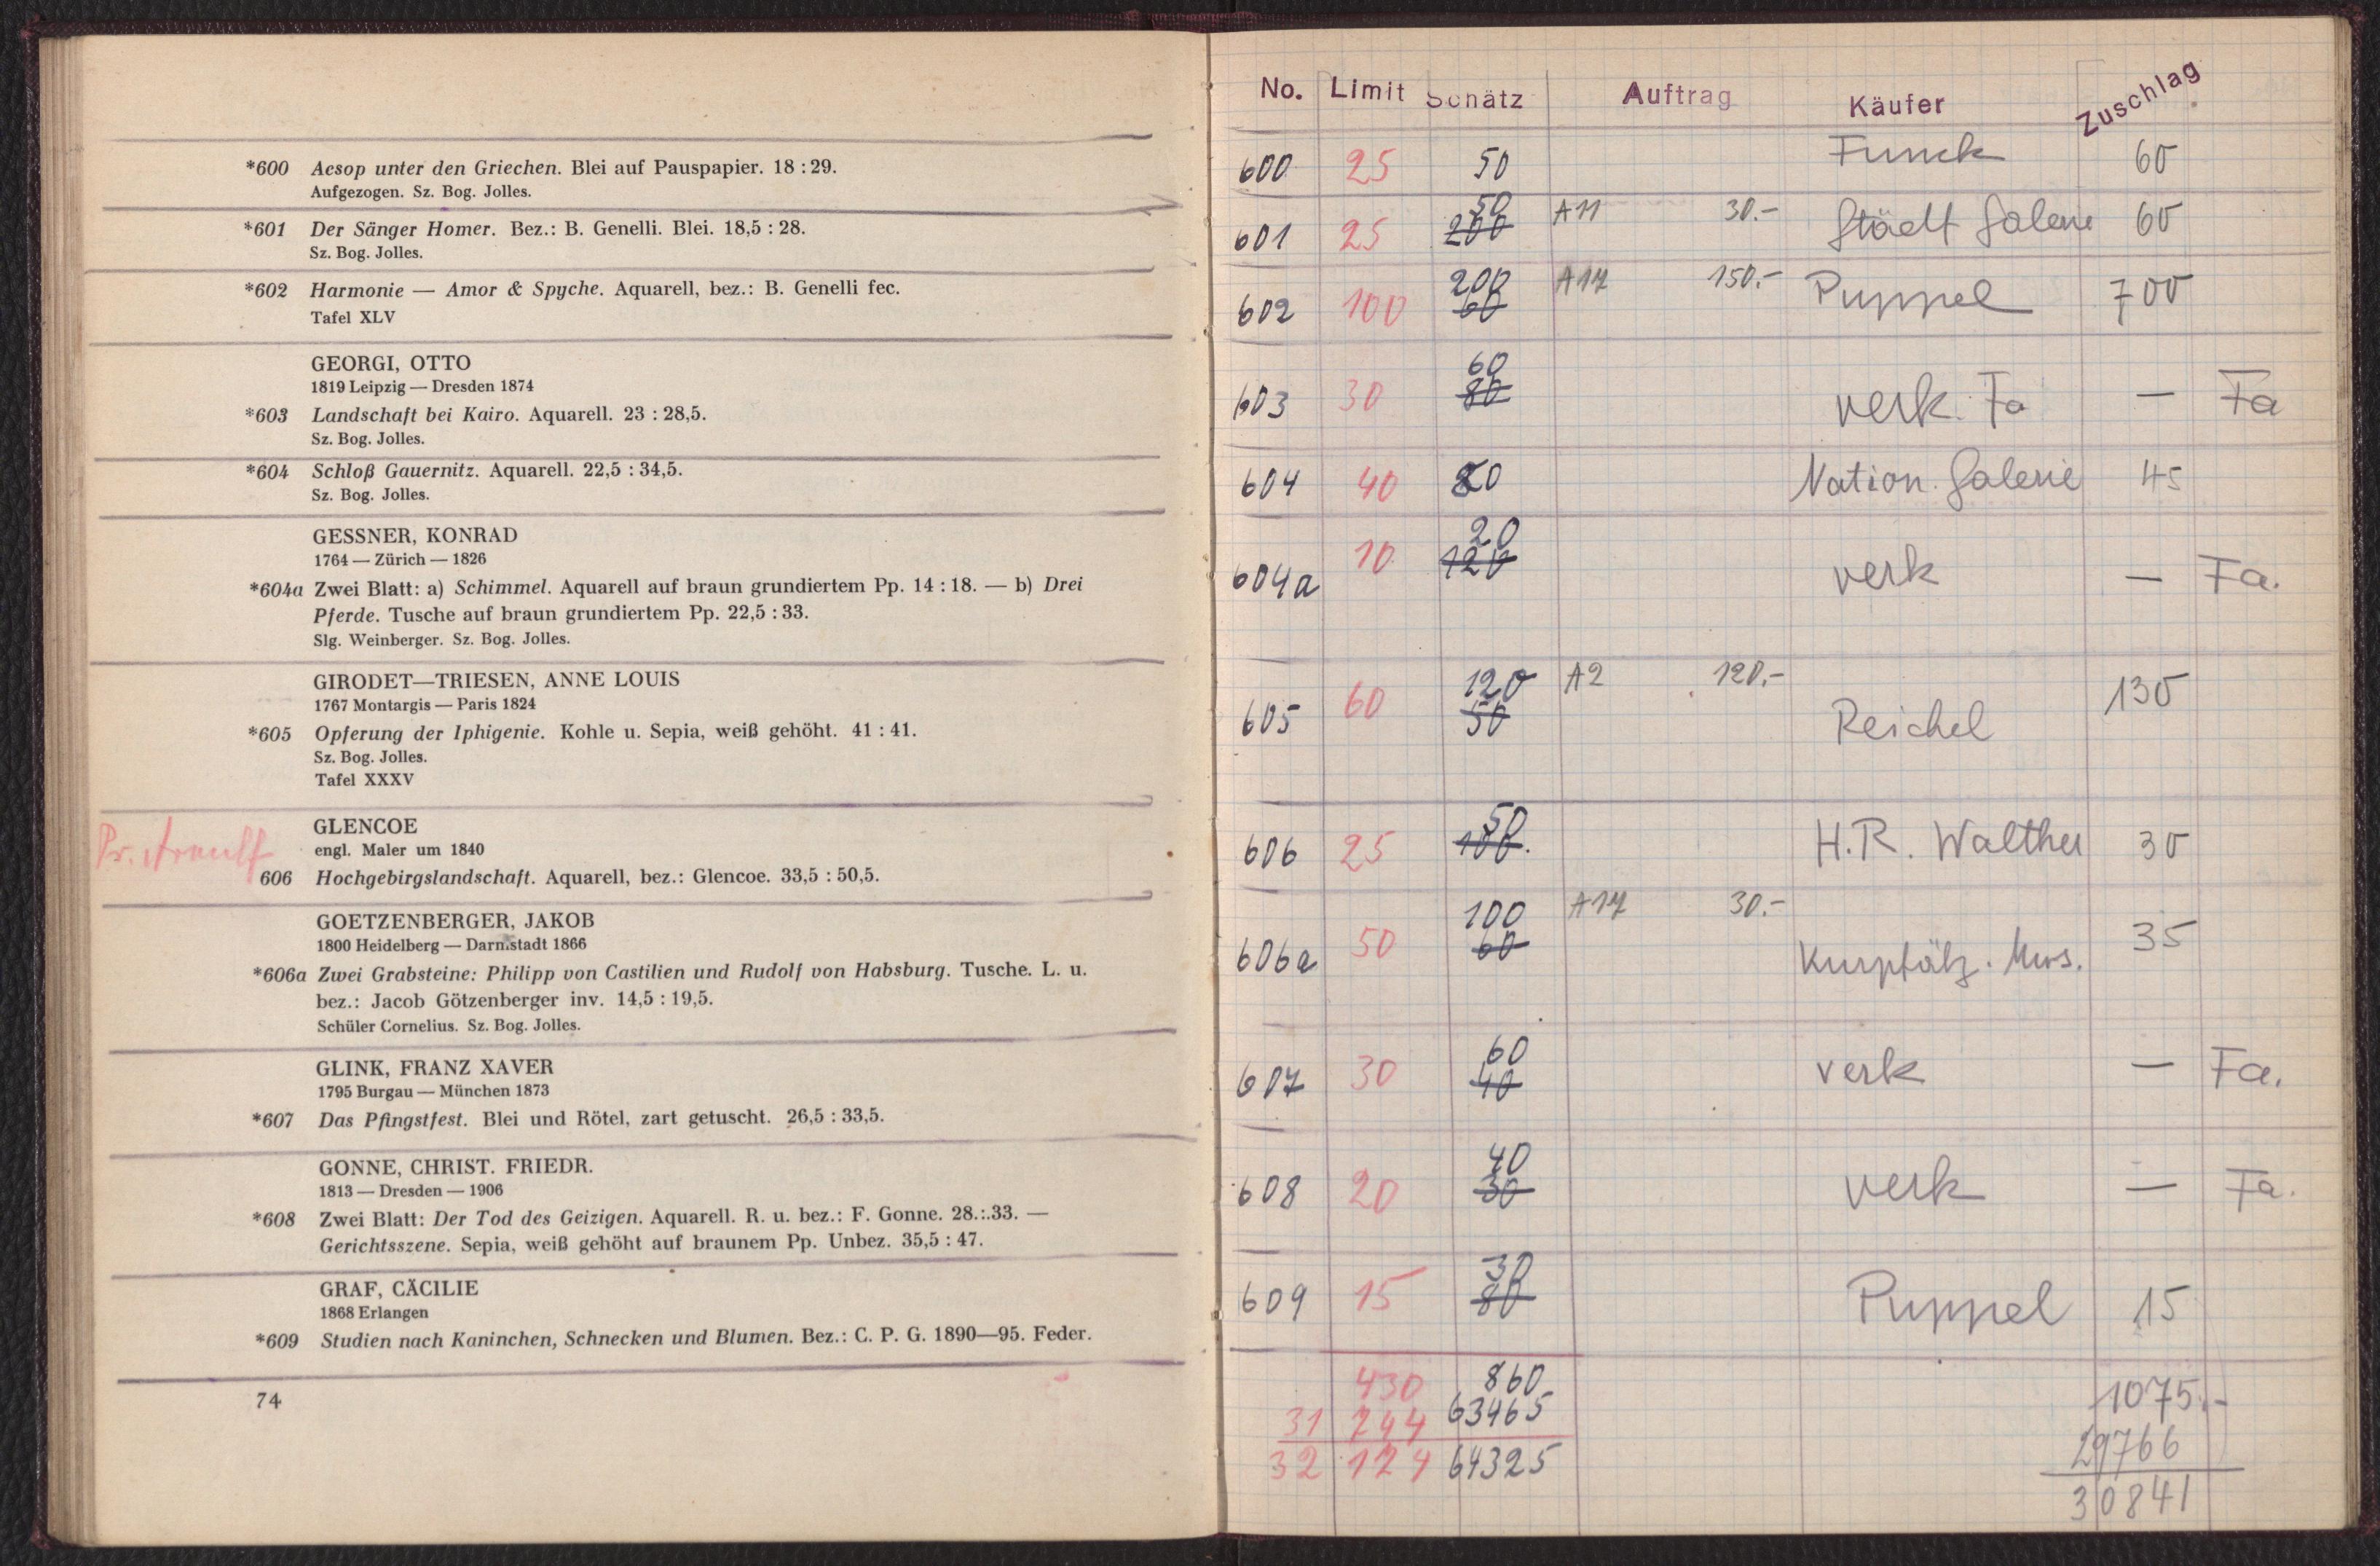 *600 Aesop unter den Griechen. Blei auf Pauspapier. 18 : 29.
Aufgezogen. Sz. Bog. Jolles.
*601 Der Sänger Homer. Bez.: B. Genelli. Blei. 18,5 : 28.
Sz. Bog. Jolles.
*602 Harmonie — Amor & Spyche. Aquarell, bez.: B. Genelli fec.
Tafel XLV
GEORGI, OTTO
1819 Leipzig — Dresden 1874
*603 Landschaft bei Kairo. Aquarell. 23 : 28,5.
Sz. Bog. Jolles.
*604 Schloß Gauernitz. Aquarell. 22,5 : 34,5.
Sz. Bog. Jolles.
GESSNER, KONRAD
1764 — Zürich — 1826
*604a Zwei Blatt: a) Schimmel. Aquarell auf braun grundiertem Pp. 14 : 18. — b) Drei
Pferde. Tusche auf braun grundiertem Pp. 22,5 : 33.
Slg. Weinberger. Sz. Bog. Jolles.
GIRODET—TRIESEN, ANNE LOUIS
1767 Montargis — Paris 1824
*605 Opferung der Iphigenie. Kohle u. Sepia, weiß gehöht. 41 : 41.
Sz. Bog. Jolles.
Tafel XXXV
GLENCOE
engl. Maler um 1840
606 Hochgebirgslandschaft. Aquarell, bez.: Glencoe. 33,5 : 50,5.
GOETZENBERGER, JAKOB
1800 Heidelberg — Darmstadt 1866
*606a Zwei Grabsteine: Philipp von Castilien und Rudolf von Habsburg. Tusche. L. u.
bez.: Jacob Götzenberger inv. 14,5 : 19,5.
Schüler Cornelius. Sz. Bog. Jolles.
GLINK, FRANZ XAVER
1795 Burgau — München 1873
*607 Das Pfingstfest. Blei und Rötel, zart getuscht. 26,5 : 33,5.
GONNE, CHRIST. FRIEDR.
1813 — Dresden — 1906
*608 Zwei Blatt: Der Tod des Geizigen. Aquarell. R. u. bez.: F. Gonne. 28.:.33. —
Gerichtsszene. Sepia, weiß gehöht auf braunem Pp. Unbez. 35,5 : 47.
GRAF, CÄCILIE
1868 Erlangen
*609 Studien nach Kaninchen, Schnecken und Blumen. Bez.: C. P. G. 1890—95. Feder.
74
No. Limit Schätz Auftrag Käufer Zuschlag
600 25 50 Funck 60
601 25 50 200 A11 30.- Städt Galerie 60
602 100 200 60 A17 150.- Puppel 700
603 30 60 80 verk. Fa — Fa
604 40 80 Nation. Galerie 45
604a 10 20 120 verk — Fa.
605 60 120 50 A2 120.- Reichel 130
606 25 50 100. H.R. Walther 30
606a 50 100 60 A17 30.- Kurpfälz. Mus. 35
607 30 60 40 verk — Fa.
608 20 40 30 verk — Fa.
609 15 30 80 Puppel 15
430 860 1075.-
31 244 63465 29766
32 124 64325 30841